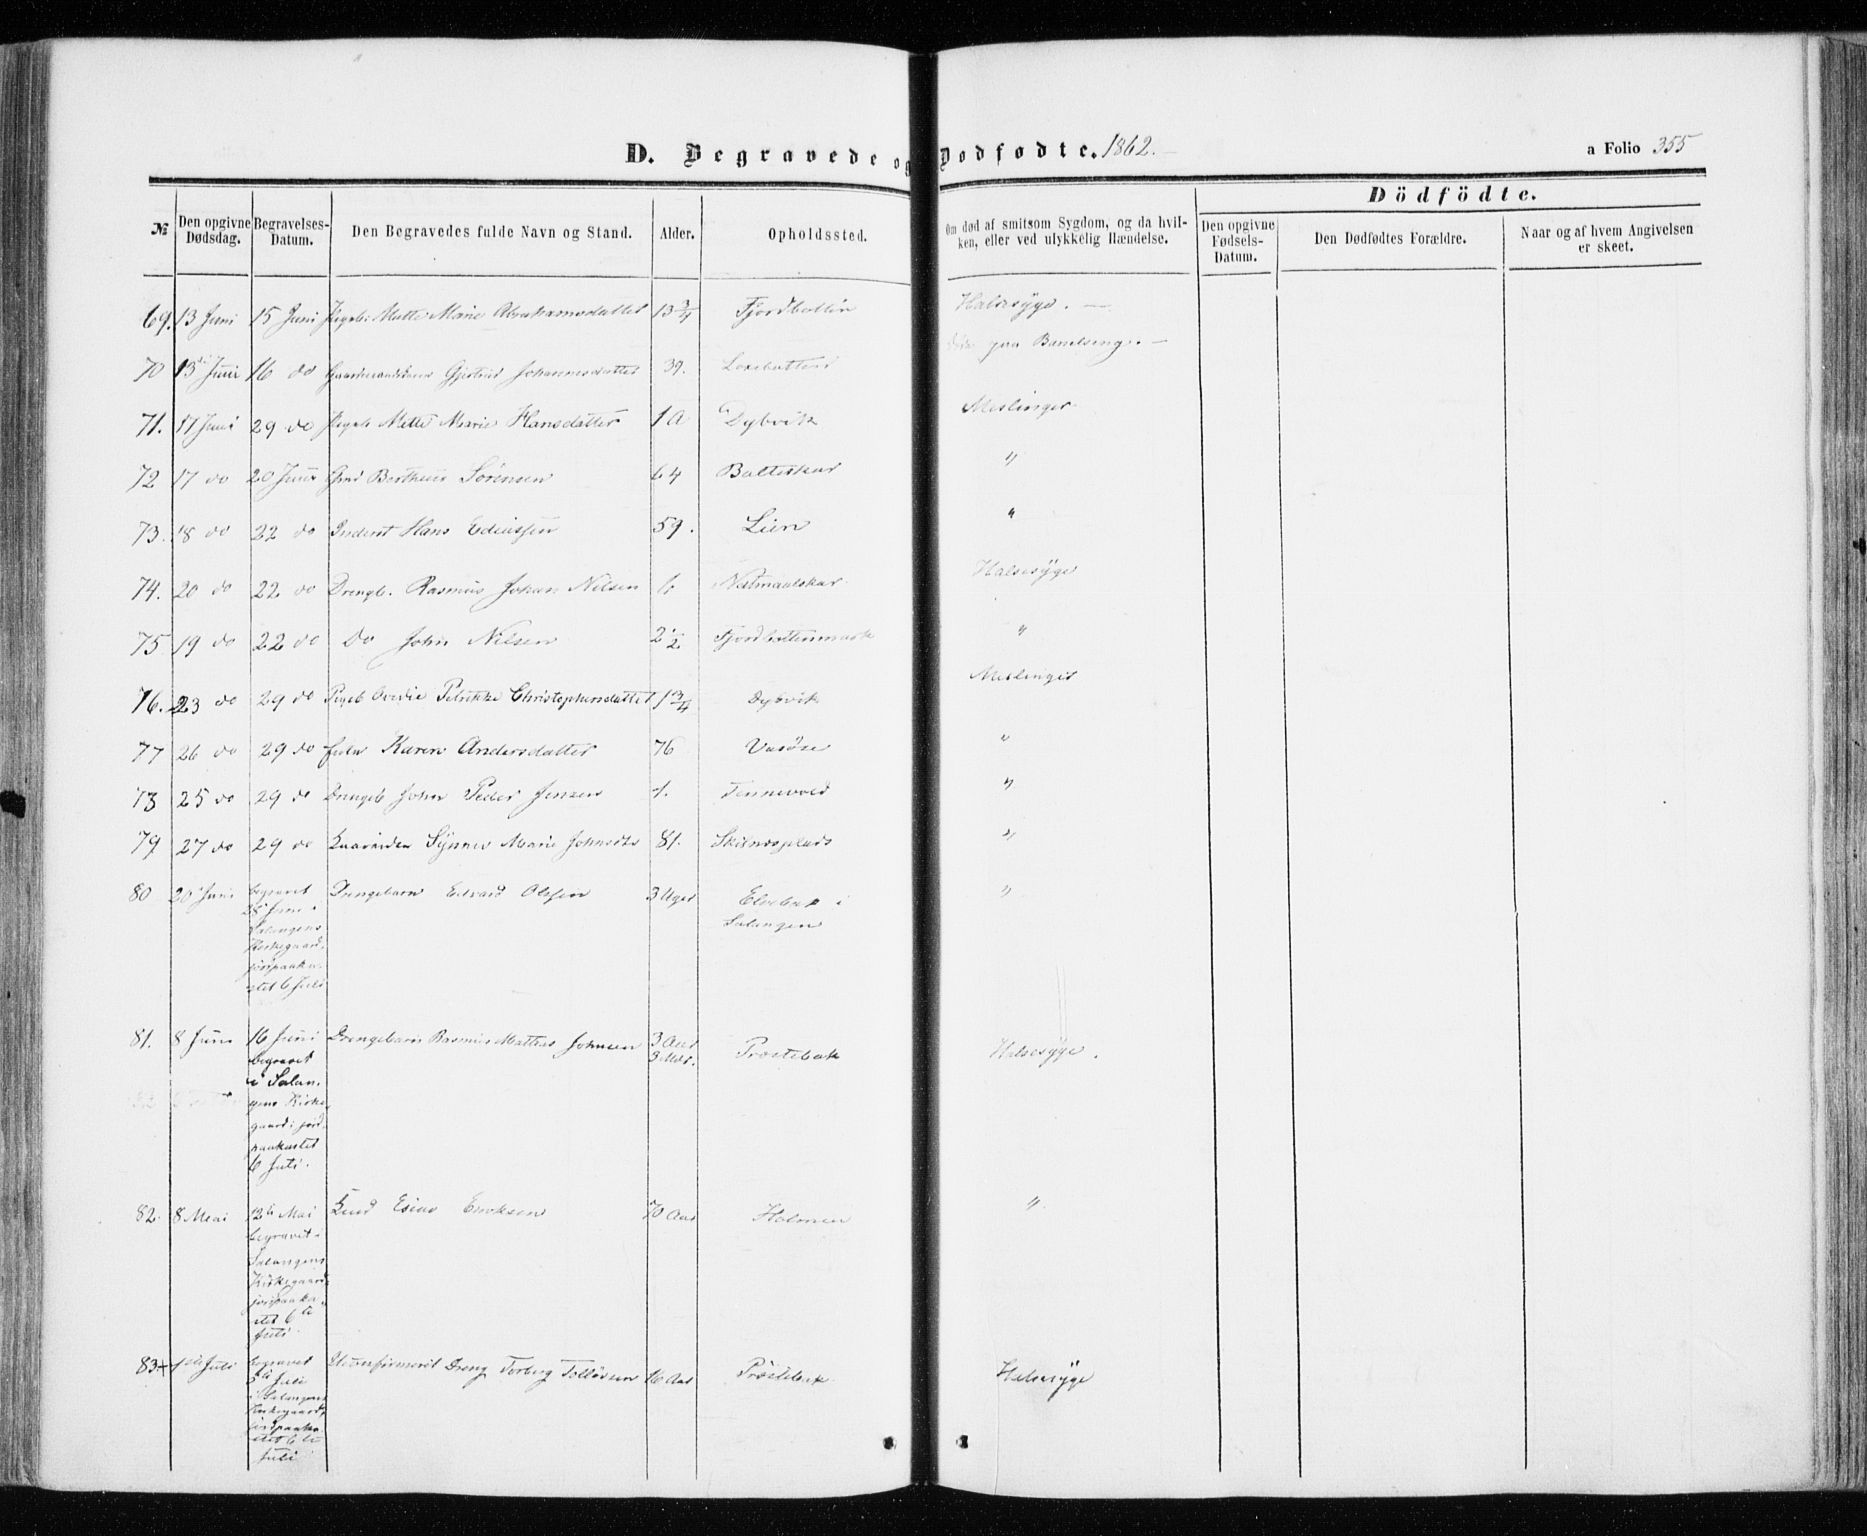 D. Begravede og Dodfodte. 1862.
a Folio 355
Dödfödte.
№
Den opgivne Dødsdag.
Begravelses-Datum.
Den Begravedes fulde Navn og Stand.
Alder.
Opholdssted.
Om død af smitsom Sygdom, og da hvilken, eller ved ulykkelig Hændelse.
Den opgivne Fødsels-Datum.
Den Dødfødtes Forældre.
Naar og af hvem Angivelsen er skeet.
69. 13 Juni 15 Juni Pigeb: Mette Marie Abrahamsdatter 13 3/4 Fjordbotten Halssyge. —
70 13de Juni 16 do Gjertrud Johannesdatter 39. paa Barselseng. —
71. 17 Juni 29 do Pigeb Mette Marie Hansdatter 1 A Dybvik Meslinger
72 17 do 20 Juni Gmd Bertheus Sørensen 64 Balteskar "
73. 18 do 22 do Inderst Hans Ediassen 59. Lien "
74. 20 do 22 do Drengb. Rasmus Johan Nilsen Halsesyge
75 19 do 22 do Do John Nilsen 2 1/2 Fjordbottenmark "
76. 23 do 29 do Pigeb Petrikke Christophersdatter 1 3/4 Dybvik Meslinger
77 26 do 29 do Karen Andersdatter 76 Vasøse "
78 25 do 29 do Drengeb John Peder Jensen 1. Tennevold "
79 27 do 29 do Marie Johnsdtr 81. "
80 20 Juni begravet
28 Juni i
Salangens
Kirkegaard,
jordpaaka-
stet 6 Juli
Drengebarn Edvard Olssen 3 Uger Elvebak i
Salangen "
81. 8 Juni 16 Juni
begravet
i Salan-
gens Kirke-
gaard, jord-
paakastet
6 Juli.
Drengebarn Rasmus Mathis Johnsen 3 Aar
3 Mdr. Prostebak Halsesyge.
82. 8 Mai 12te Mai
begravet i
Salangens
Kirkegaard
jordpaaka-
stet 6te
Juli.
Esias Eriksen 70 Aar Holmen "
83 + 1ste Juli begravet
5te Juli
i Salangens
Kirkegaard,
jordpaaka-
stet 6te
Juli
Ukonfirmeret Dreng Torberg Tolløvsen 16 Aar Prostebak Halsesyge